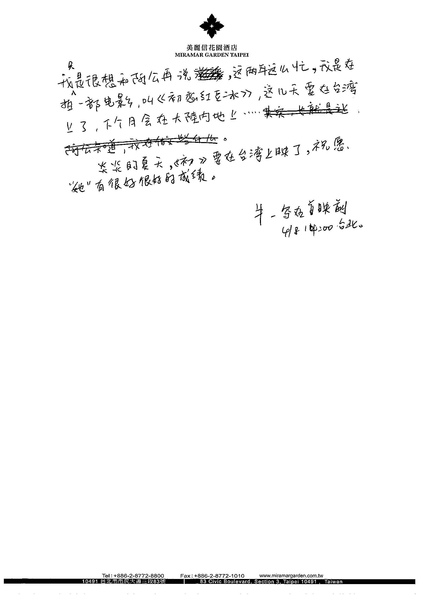 美麗信花園酒店
MIRAMAR GARDEN TAIPEI
只
我是很想和阿公再说，这两年这么忙，我是在
拍一部电影，叫《初恋红豆冰》，这几天要在台湾
上了，下个月会在大陆内地上……其实，也就是让
阿公知道，我在做些什么。
炎炎的夏天，《初》要在台湾上映了，祝愿、
“她”有很好很好的成绩。
牛－写在首映前
4/8 14:00 台北。
Tel：+886-2-8772-8800 Fax：+886-2-8772-1010 www.miramargarden.com.tw
10491 台北市市民大道三段83號 83 Civic Boulevard, Section 3, Taipei 10491, Taiwan